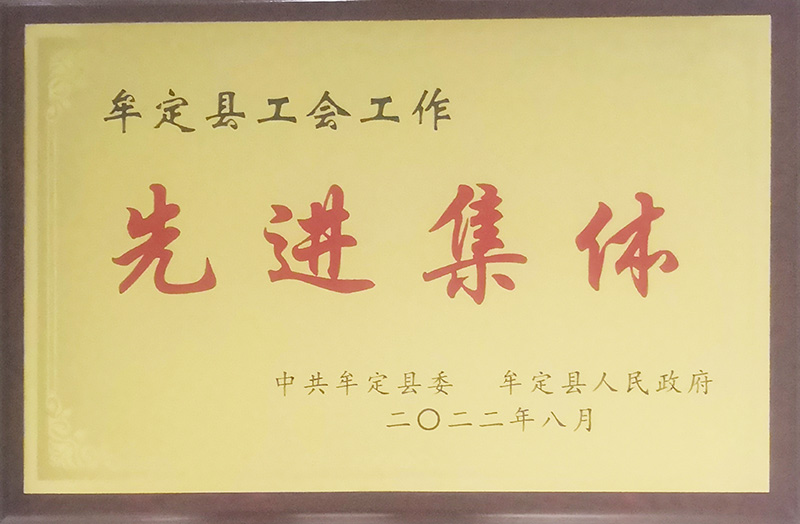 牟定县工会工作
先进集体
中共牟定县委 牟定县人民政府
二〇二二年八月